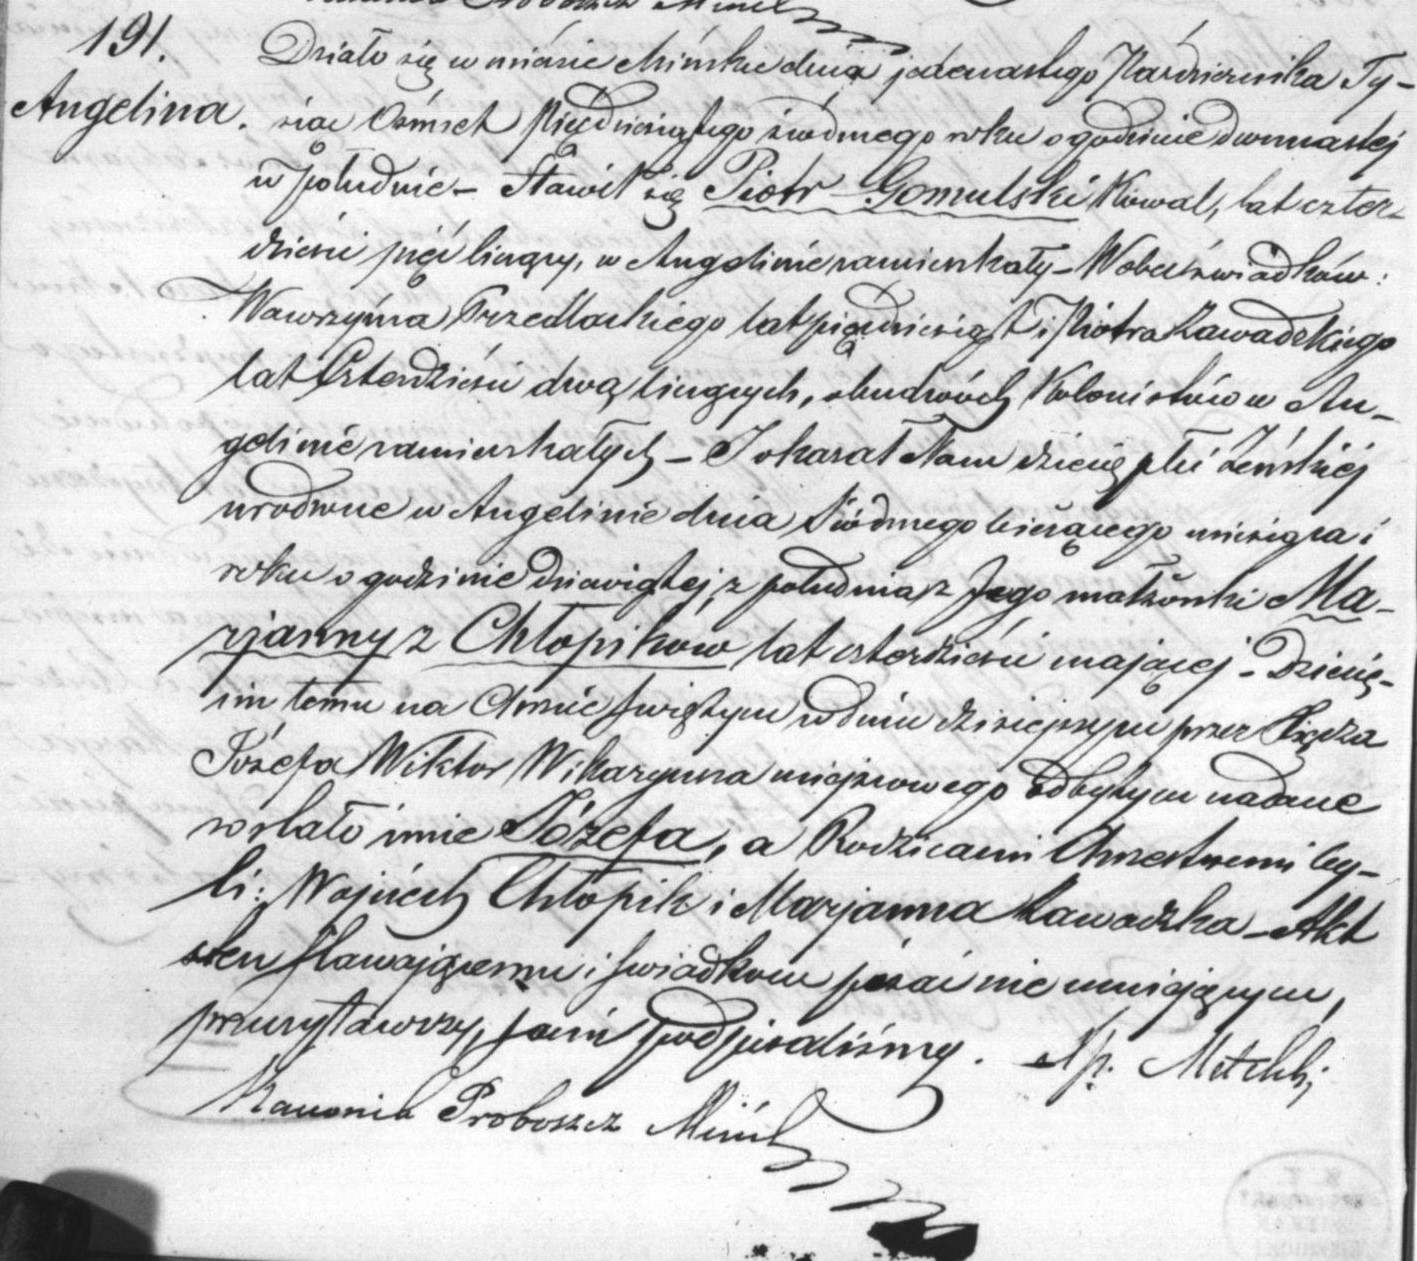 191.
Angelina.
Działo się w mieście Mińsku dnia jedenastego Października Ty-
siąc Ośmset Pięćdziesiątego siódmego roku o godzinie dwunastej
w południe – Stawił się Piotr Gomulski Kowal, lat czter-
dzieści pięć liczący, w Angelinie zamieszkały – Wobec świadków:
Wawrzyńca Przedlackiego lat pięćdziesiąt i Piotra Zawadzkiego
lat Czterdzieści dwa liczących, obudwóch Kolonistów w An-
gelinie zamieszkałych – I okazał Nam dziecię płci Żeńskiej
urodzone w Angelinie dnia Siódmego bieżącego miesiąca i
roku o godzinie dziewiątej z południa z Jego małżonki Ma-
rjanny z Chłopików lat czterdzieści mającej – Dziecię-
ciu temu na Chrzcie świętym w dniu dzisiejszym przez Księdza
Józefa Wiktor Wikaryusza miejscowego odbytym nadane
zostało imie Józefa, a Rodzicami Chrzestnemi by-
li: Wojciech Chłopik i Marjanna Zawadzka – Akt
ten stawającemu i świadkom pisać nie umiejącym,
przeczytawszy, sami podpisaliśmy.
Kanonik Proboszcz Miński